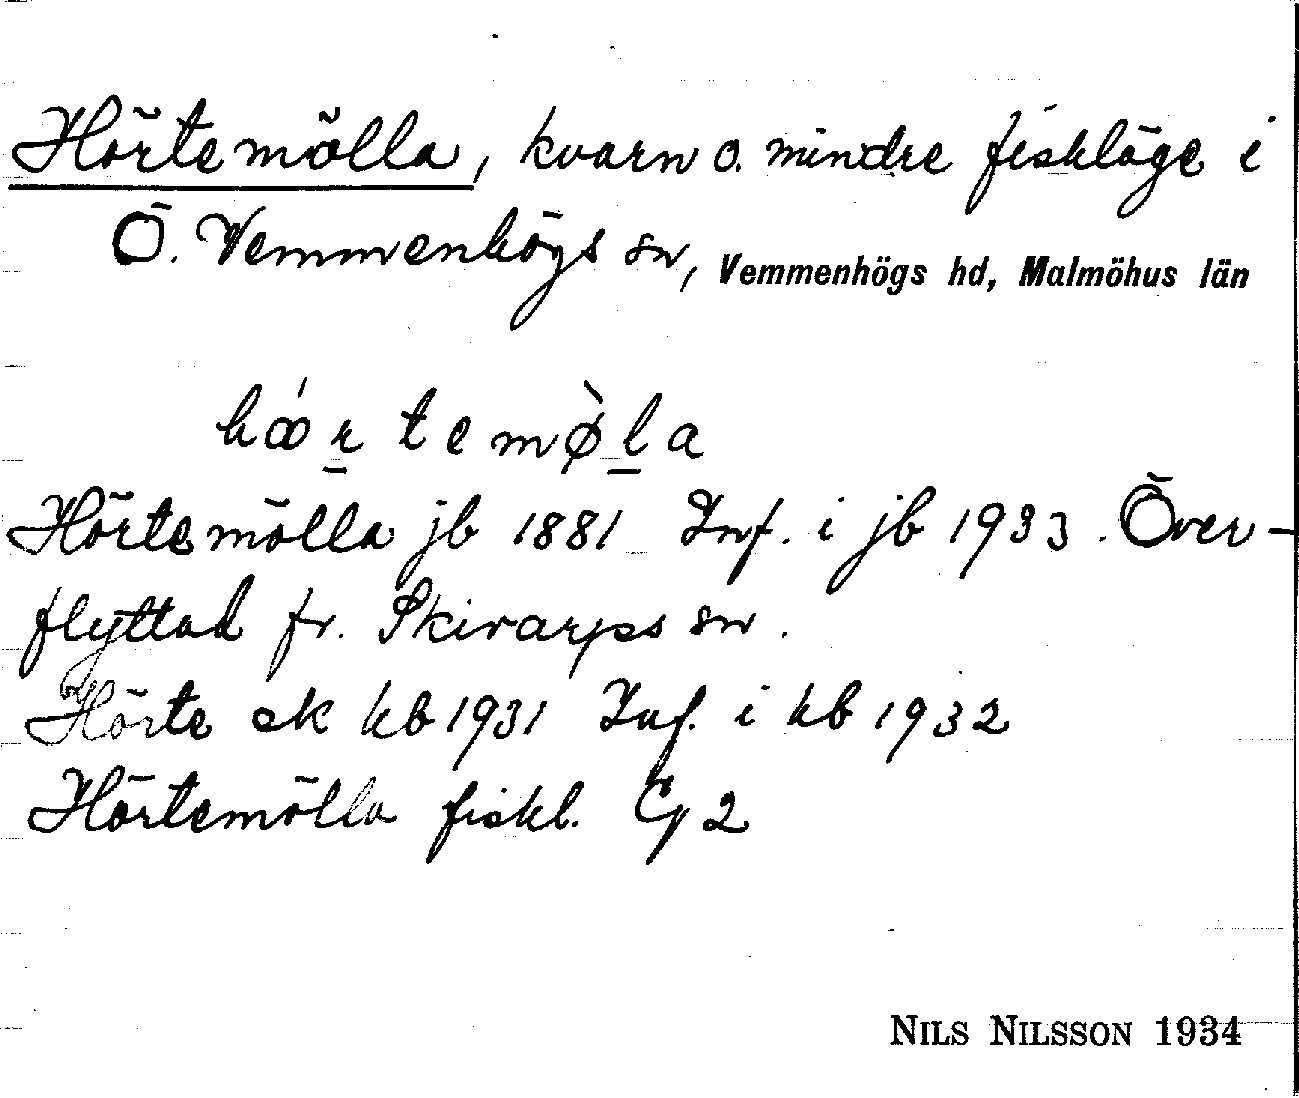 Hörtemölla, kvarn o. mindre fiskläge i
Ö. Vemmenhögs sn, Vemmenhögs hd, Malmöhus län
hœ́r̲temø̀l̲a
Hörtemölla jb 1881 Inf. i jb 1933. Över-
flyttad fr. Skivarps sn.
Hörte ek kb 1931 Inf. i kb 1932
Hörtemölla fiskl. G 2
NILS NILSSON 1934